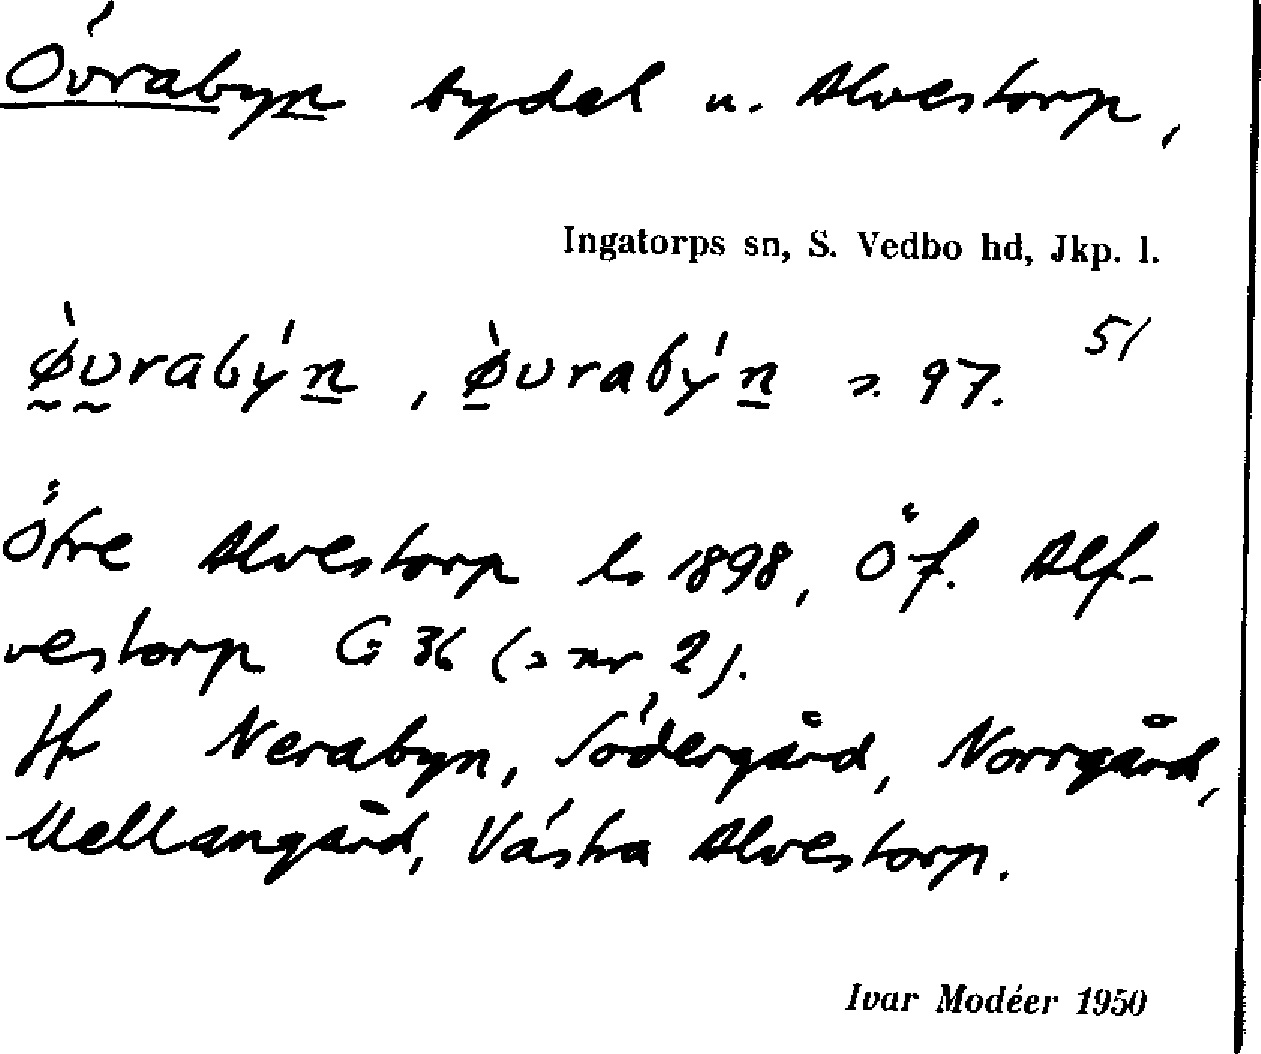 Övrabyn bydel u. Alvestorp,
Ingatorps sn, S. Vedbo hd, Jkp. l.
51
ø̀vrabýn, ø̀vrabýn s. 97.
Övre Alvestorp ls 1898, Öf. Alf-
vestorp G 36 (s nr 2).
Jfr Nerabyn, Södergård, Norrgård,
Mellangård, Västra Alvestorp.
Ivar Modéer 1950